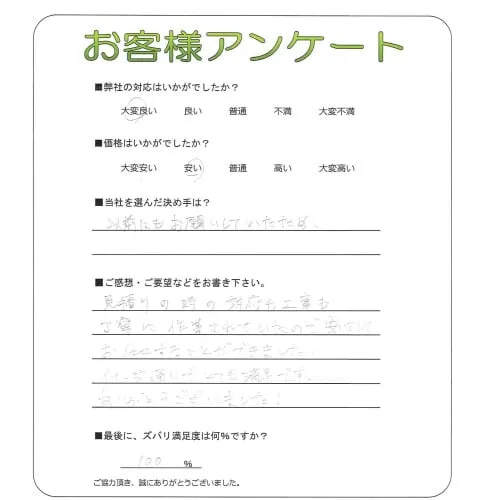 お客様アンケート
■弊社の対応はいかがでしたか?
大変良い 良い 普通 不満 大変不満
■価格はいかがでしたか?
大変安い 安い 普通 高い 大変高い
■当社を選んだ決め手は?
以前にもお願いしていたため。
■ご感想・ご要望などをお書き下さい。
見積りの時の対応も工事も
丁寧に作業されていたので安心して
お任せすることができました。
とても満足です。
ありがとうございました!
■最後に、ズバリ満足度は何%ですか?
100 %
ご協力頂き、誠にありがとうございました。